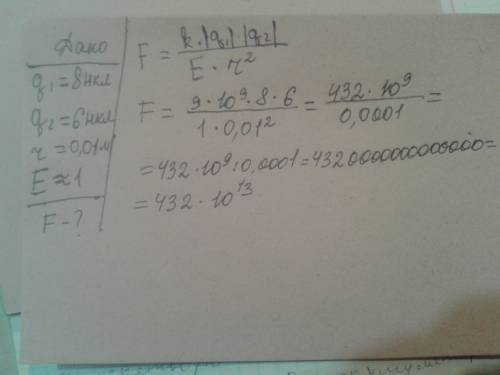 Дано
q₁=8нкл
q₂=6нкл
r=0,01м
E≈1
F-?
F = k·|q₁|·|q₂| / E·r²
F = 9·10⁹·8·6 / 1·0,01² = 432·10⁹ / 0,0001 =
=432·10⁹:0,0001=4320000000000000=
=432·10¹³